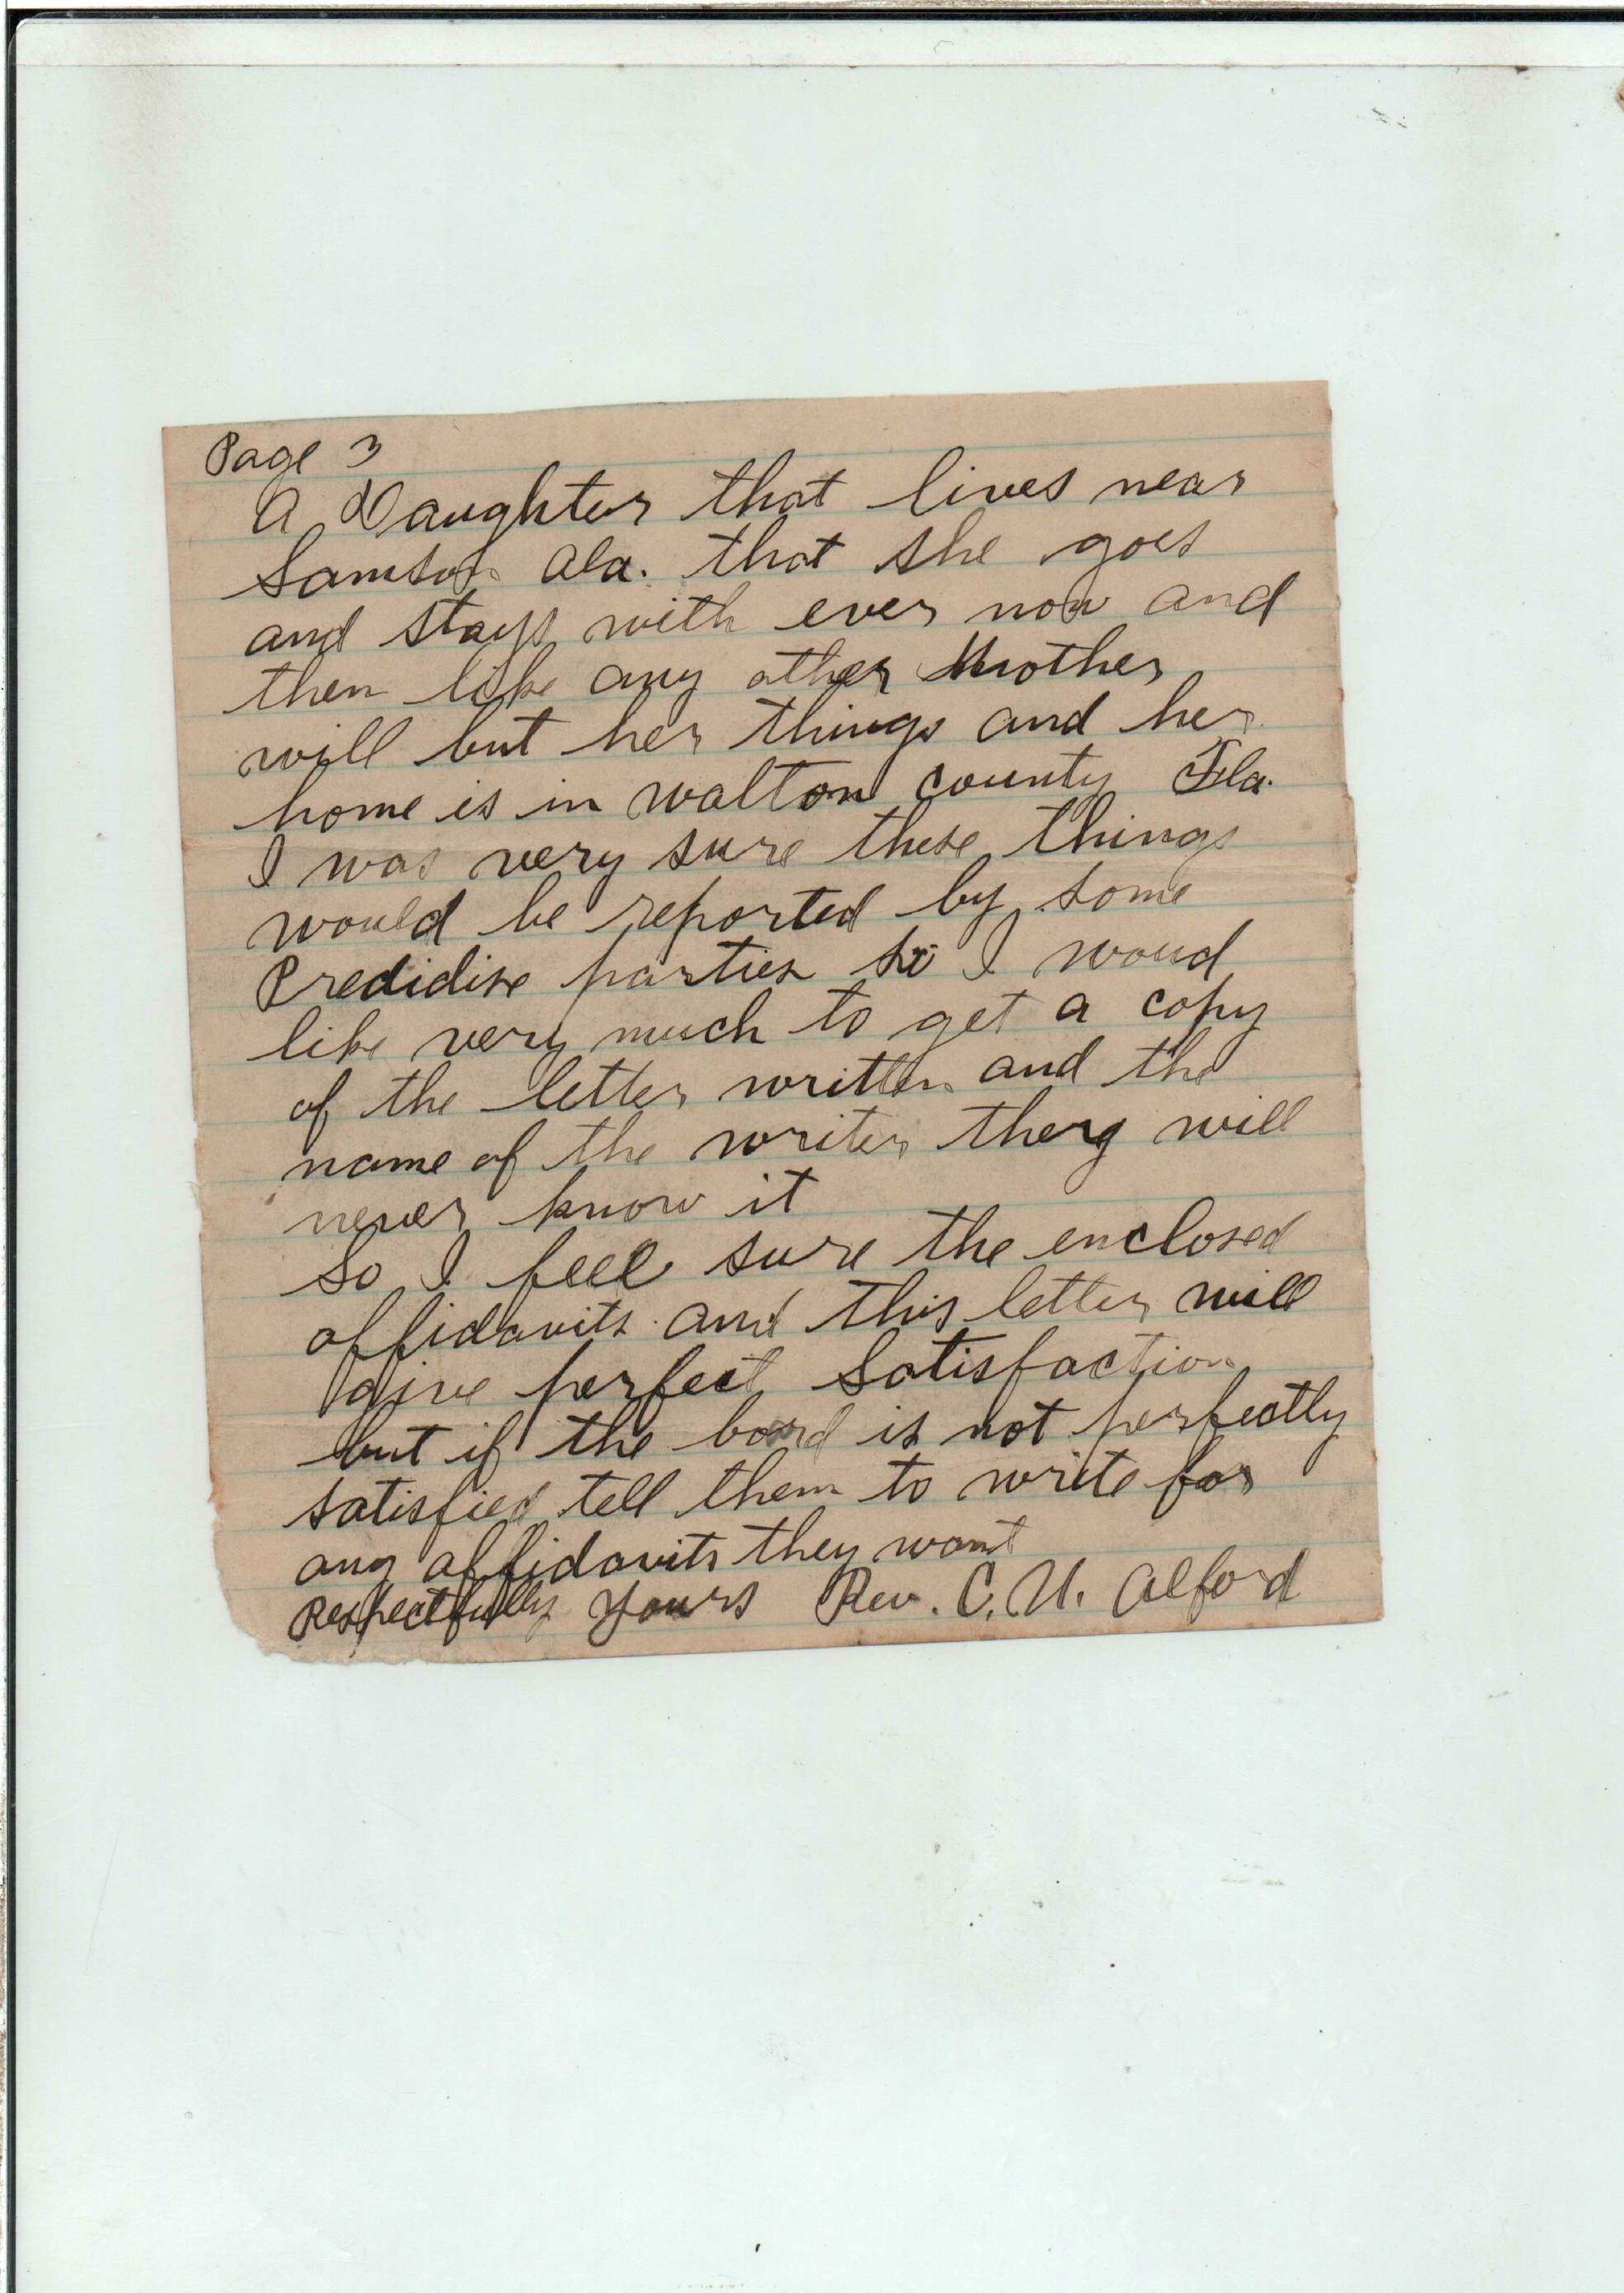 Page 3
A Daughter that lives near
Samson Ala. that she goes
and stays with ever now and
then like any other Mother
will but her things and her
home is in walton county Fla.
I was very sure these things
would be reported by some
Predidise parties so I woud
like very much to get a copy
of the letter written and the
name of the writer they will
never know it
So I feel sure the enclosed
affidavits and this letter will
give perfect Satisfaction
but if the board is not perfectly
satisfied tell them to write for
any affidavits they want
Respectfully yours Rev. C. U. Alford